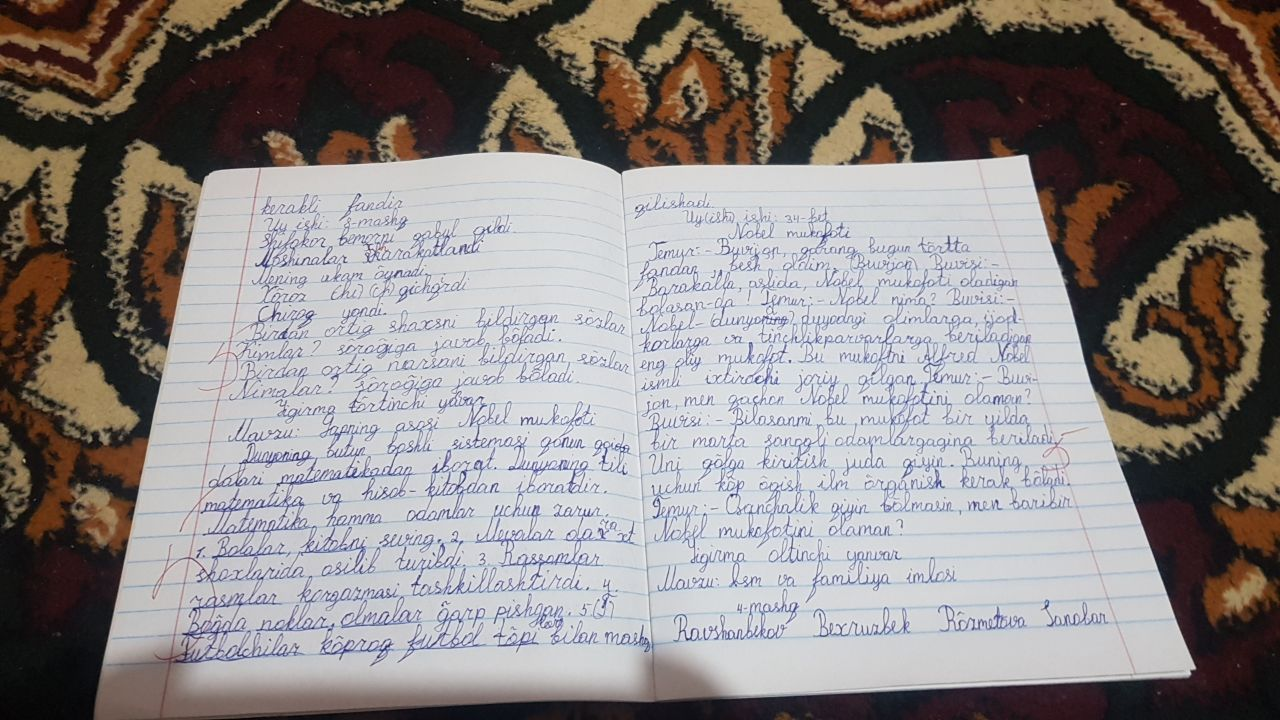 kerakli fandir
Uy ishi: 3-mashg
Shifokor bemorni qabul qildi.
Moshinalar harakatlandi
Mening ukam õynadi
Xõroz (chi) (ch) qichqirdi
Chiroq yondi.
Birdan ortiq shaxsni bildirgan sõzlar
Kimlar? sõrog̃iga javob bõladi.
Birdan ortiq narsani bildirgan sõzlar
Nimalar? sõrog̃iga javob bõladi.
Yigirma tõrtinchi yanvar
Mavzu: Gapning asosi Nobel mukofoti
Dunyoning butun boshli sistemasi qonun qoida
dalari matematekadan iborat. Dunyoning tili
matematika va hisob-kitobdan iboratdir.
Matematika hamma odamlar uchun zarur.
1. Bolalar, kitobni seving. 2. Mevalar daraxt
shoxlarida osilib turibdi. 3. Rassomlar
rasmlar korgazmasi tashkillashtirdi. 4.
Bog̃da noklar, olmalar g̃arp pishgan. 5
Futbolchilar kõproq futbol tõpi bilan mashq
qilishadi
Uy(ishi) ishi: 34-bet
Nobel mukofoti
Temur:- Buvijon, qarang bugun tõrtta
fandan besh oldim. (Buvijon) Buvisi:-
Barakalla, aslida, Nobel mukofoti oladigan
bolasan-da! Temur:- Nobel nima? Buvisi:-
Nobel- (dunyoning) dunyodagi olimlarga, ijod-
korlarga va tinchlikparvarlarga beriladigan
eng oliy mukofot. Bu mukoftni Alfred Nobel
ismli ixtirochi joriy qilgan. Temur:- Buvi-
jon, men qachon Nobel mukofotini olaman?
Buvisi:- Bilasanmi bu, mukofot bir yilda
bir marta sanoqli odamlargagina beriladi.
Uni qõlga kiritish juda qiyin. Buning
uchun kõp õqish ilm õrganish kerak
Temur:- Qanchalik qiyin bõlmasin, men baribir
Nobel mukofotini olaman?
Yigirma oltinchi yanvar
Mavzu: Ism va familiya imlosi
4-mashg
Ravshanbekov Bexruzbek Rõzmetova Sanobar